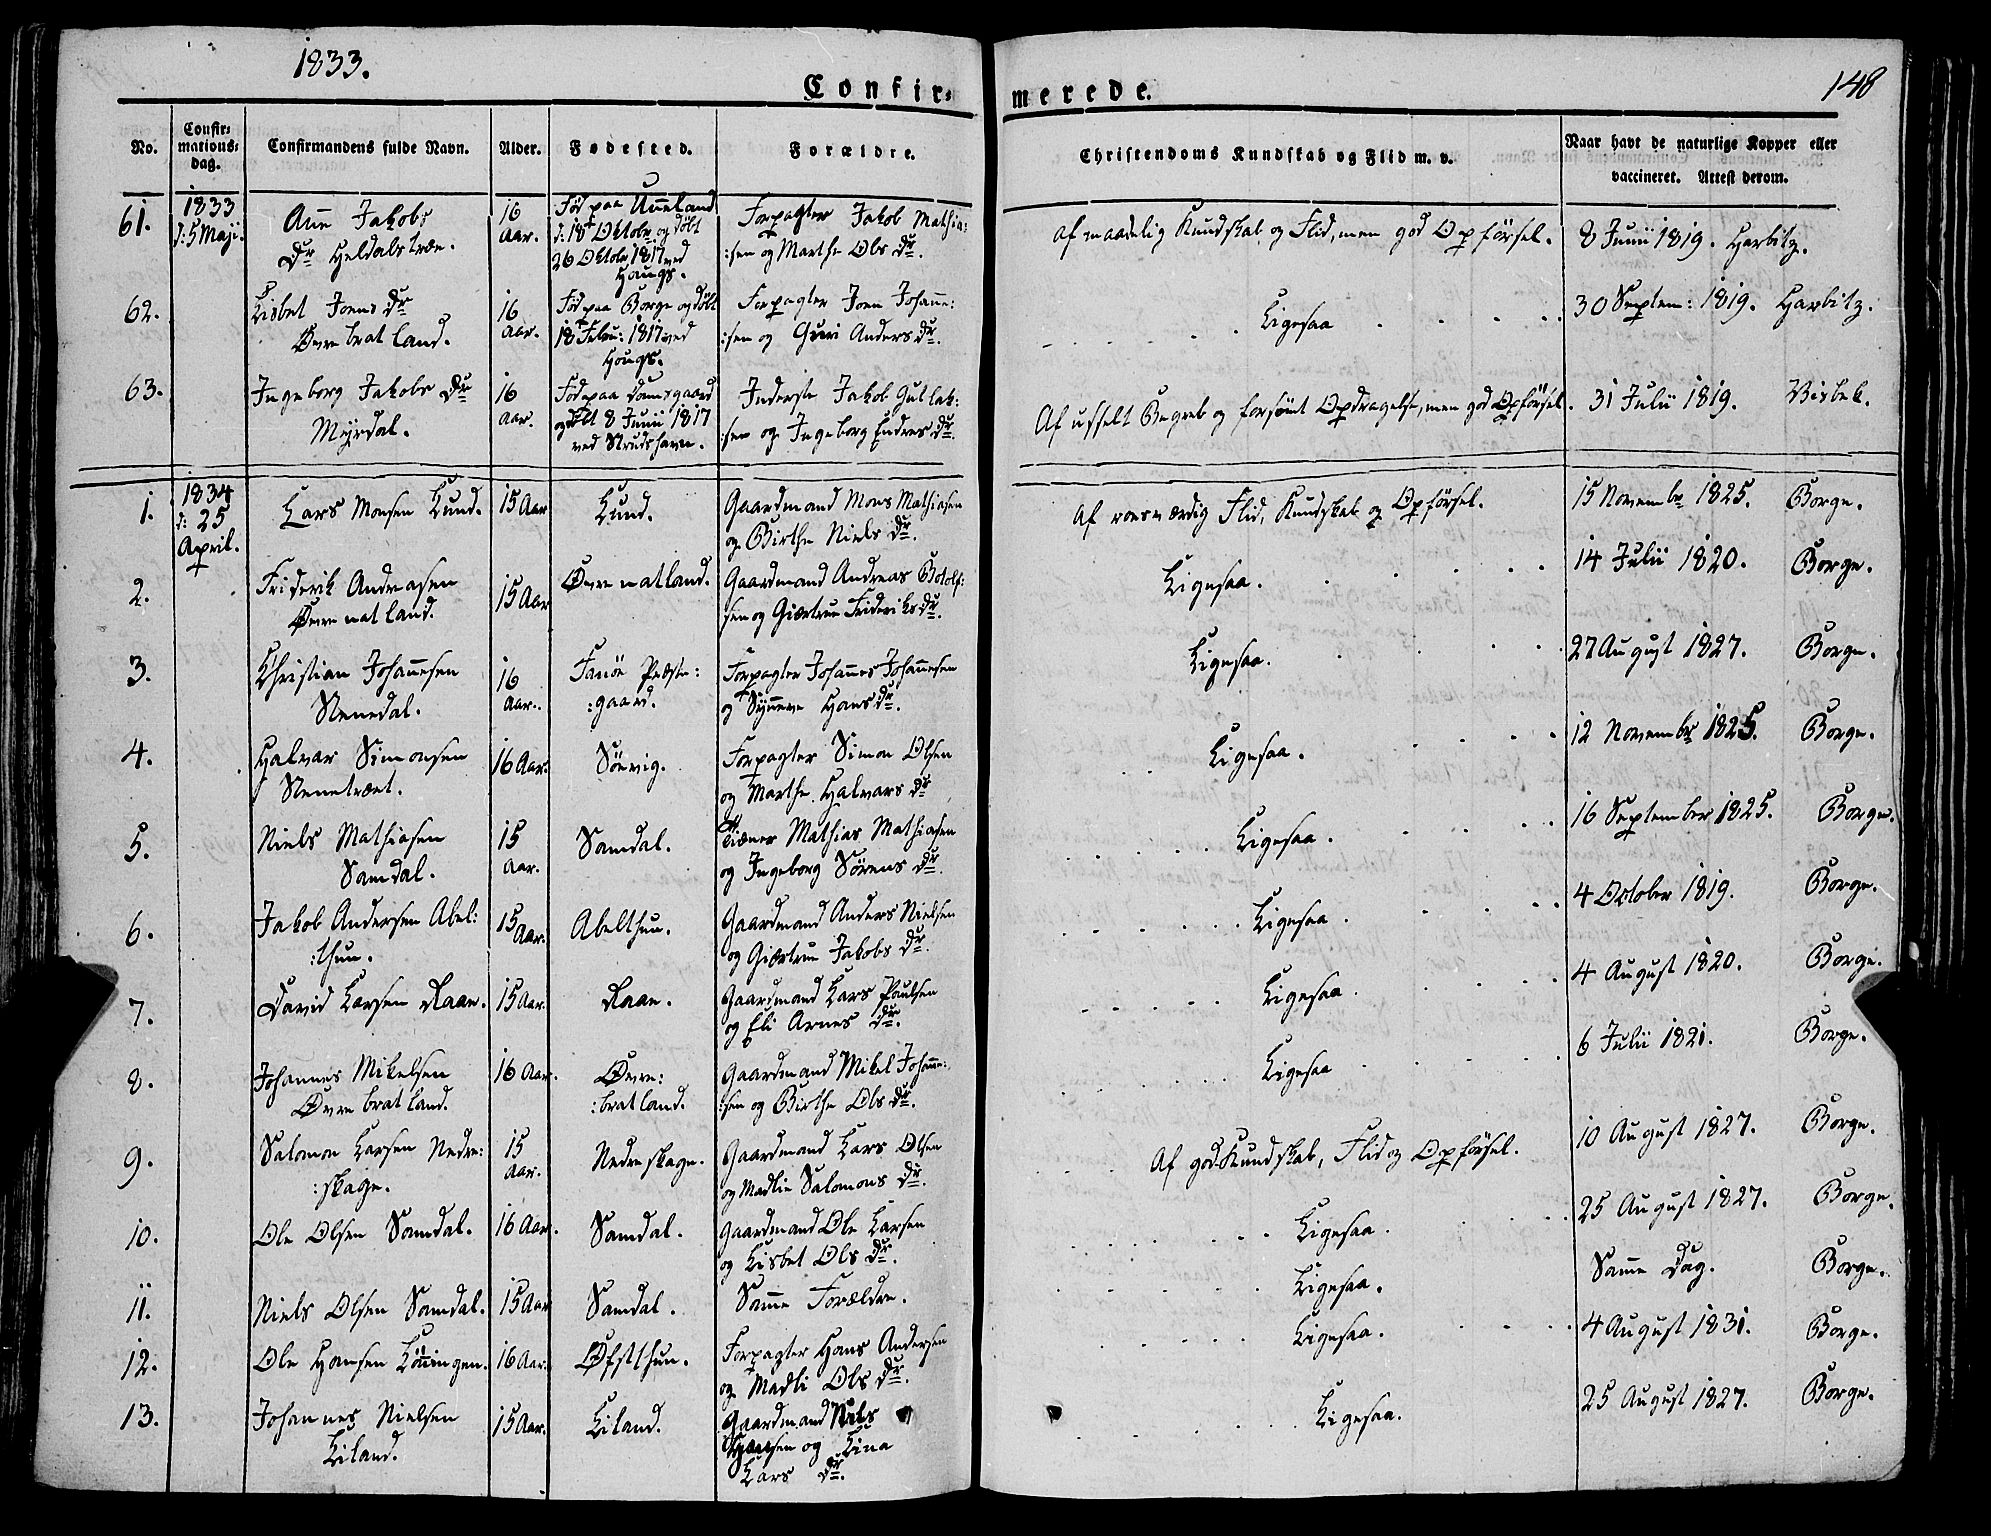 1833.
Confir-
merede.
148
No.
Confir-
mations-
dag.
Confirmandens fulde Navn.
Alder.
Fødested.
Forældre.
Christendoms Kundskab og Flid m. v.
Naar havt de naturlige Kopper eller
vaccineret. Attest derom.
61.
1833
d: 5 Maji.
Anne Jakobs
Dr Heldalstræe.
16
Aar.
Fød paa Unneland
d: 18t Oktobr og døbt
26 Oktobr 1817 ved
Haugs.
Forpagter Jakob Mathia:
:sen og Marthe Ols Dr.
af maadelig Kundskab og Flid, men god Opførsel.
8 Junii 1819. Harbitz.
62.
Lisbet Joens Dr
Øvrebratland.
16
Aar.
Fød paa Borge og døbt
18 Febru: 1817 ved
Hougs.
Forpagter Joen Johanne:
:sen og Guri Anders Dr.
Ligesaa
30 Septem: 1819. Harbitz.
63.
Ingeborg Jakobs Dr
Myrdal.
16
Aar.
Fød paa Damsgaard
og døbt 8 Junii 1817
ved Strudshavn.
Inderste Jakob Gullak:
:sen og Ingeborg Endres Dr.
Af usselt Begreb og forsømt Opdragelse, men god Opførsel.
31 Julii 1819. Visbek.
1.
1834
d: 25
April.
Lars Monsen Lund.
15 Aar
Lund.
Gaardmand Mons Mathiasen
og Birthe Niels Dr.
Af roesværdig Flid, Kundskab og Opførsel.
15 Novembr 1825. Borge.
2.
Friderik Andreasen
Øvrenatland.
15 Aar
Øvrenatland.
Gaardmand Andreas Botolf:
sen og Giertrue Frideriks Dr.
Ligesaa.
14 Julii 1820. Borge.
3.
Christian Johannesen
Stenedal.
16
Aar.
Fanøe Præste:
:gaard.
Forpagter Johannes Johannesen
og Synneve Hans Dr.
Ligesaa.
27 August 1827. Borge.
4.
Halvar Simonsen
Stenetræet.
16 Aar.
Søevig.
Forpagter Simon Olsen
og Marthe Halvars Dr
Ligesaa.
12 Novembr 1825. Borge.
5.
Niels Mathiasen
Samdal.
15
Aar.
Samdal.
Tiæner Mathias Mathiasen
og Ingeborg Sørens Dr.
Ligesaa.
16 September 1825. Borge.
6.
Jakob Andersen Abel:
:thun.
15 Aar.
Abelthun.
Gaardmand Anders Nielsen
og Giertrue Jakobs Dr.
Ligesaa.
4 October 1819. Borge.
7.
David Larsen Raae.
15 Aar.
Raae.
Gaardmand Lars Paulsen
og Eli Arnes Dr.
Ligesaa.
4 August 1820. Borge.
8.
Johannes Mikelsen
Øvrebratland.
16 Aar.
Øvre:
:bratland.
Gaardmand Mikel Johanne:
:sen og Birthe Ols Dr.
Ligesaa
6 Julii 1821. Borge.
9.
Salomon Larsen Nedre:
:skage.
15
Aar.
Nedreskage.
Gaardmand Lars Olsen
og Madlie Salomons Dr.
Af god Kundskab, Flid og Opførsel.
10 August 1827. Borge.
10.
Ole Olsen Samdal.
16 Aar.
Samdal.
Gaardmand Ole Larsen
og Lisbet Ols Dr.
Ligesaa.
25 August 1827. Borge.
11.
Niels Olsen Samdal.
15 Aar
Samdal.
Samme Forældre.
Ligesaa.
Samme Dag. Borge.
12.
Ole Hansen Lönningen.
16 Aar.
Øfstthun.
Forpagter Hans Andersen
og Madli Ols Dr.
Ligesaa.
4 August 1831. Borge.
13.
Johannes Nielsen
Liland.
15 Aar.
Liland.
Gaardmand Niels
Hansen og Lina
Lars Dr.
Ligesaa.
25 August 1827. Borge.